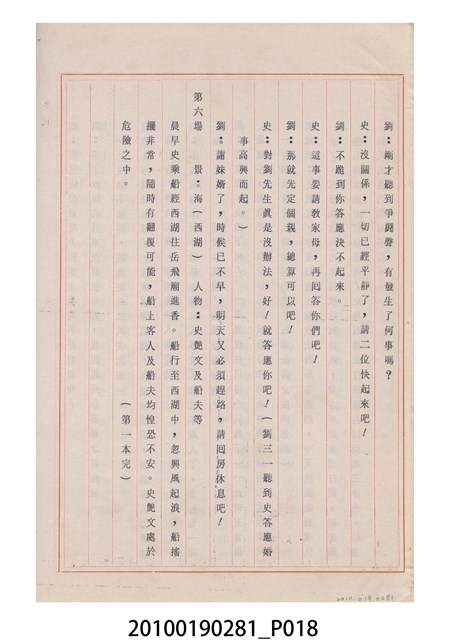 劉：剛才聽到爭鬪聲，有發生了何事嗎？
史：沒關係，一切已經平靜了，請二位快起來吧！
劉：不跪到你答應決不起來。
史：這事要請教家母，再囘答你們吧！
劉：那就先定個親，總算可以吧！
史：對劉先生眞是沒辦法，好！就答應你吧！（劉三一聽到史答應婚
事高興而起。）
劉：謝妹婿了，時候已不早，明天又必須趕路，請囘房休息吧！
第六場　景：海（西湖）　人物：史艷文及船夫等
晨早史乘船經西湖往岳飛廟進香。船行至西湖中，忽興風起浪，船搖
擺非常，隨時有翻覆可能，船上客人及船夫均惶恐不安。史艷文處於
危險之中。
（第一本完）
2010.019.0281
20100190281_P018